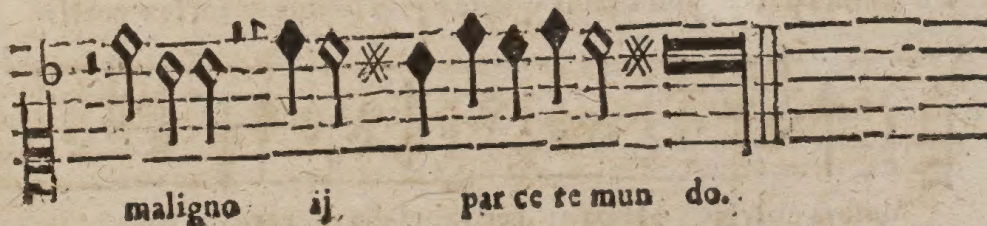 maligno ij par ce re mun do.